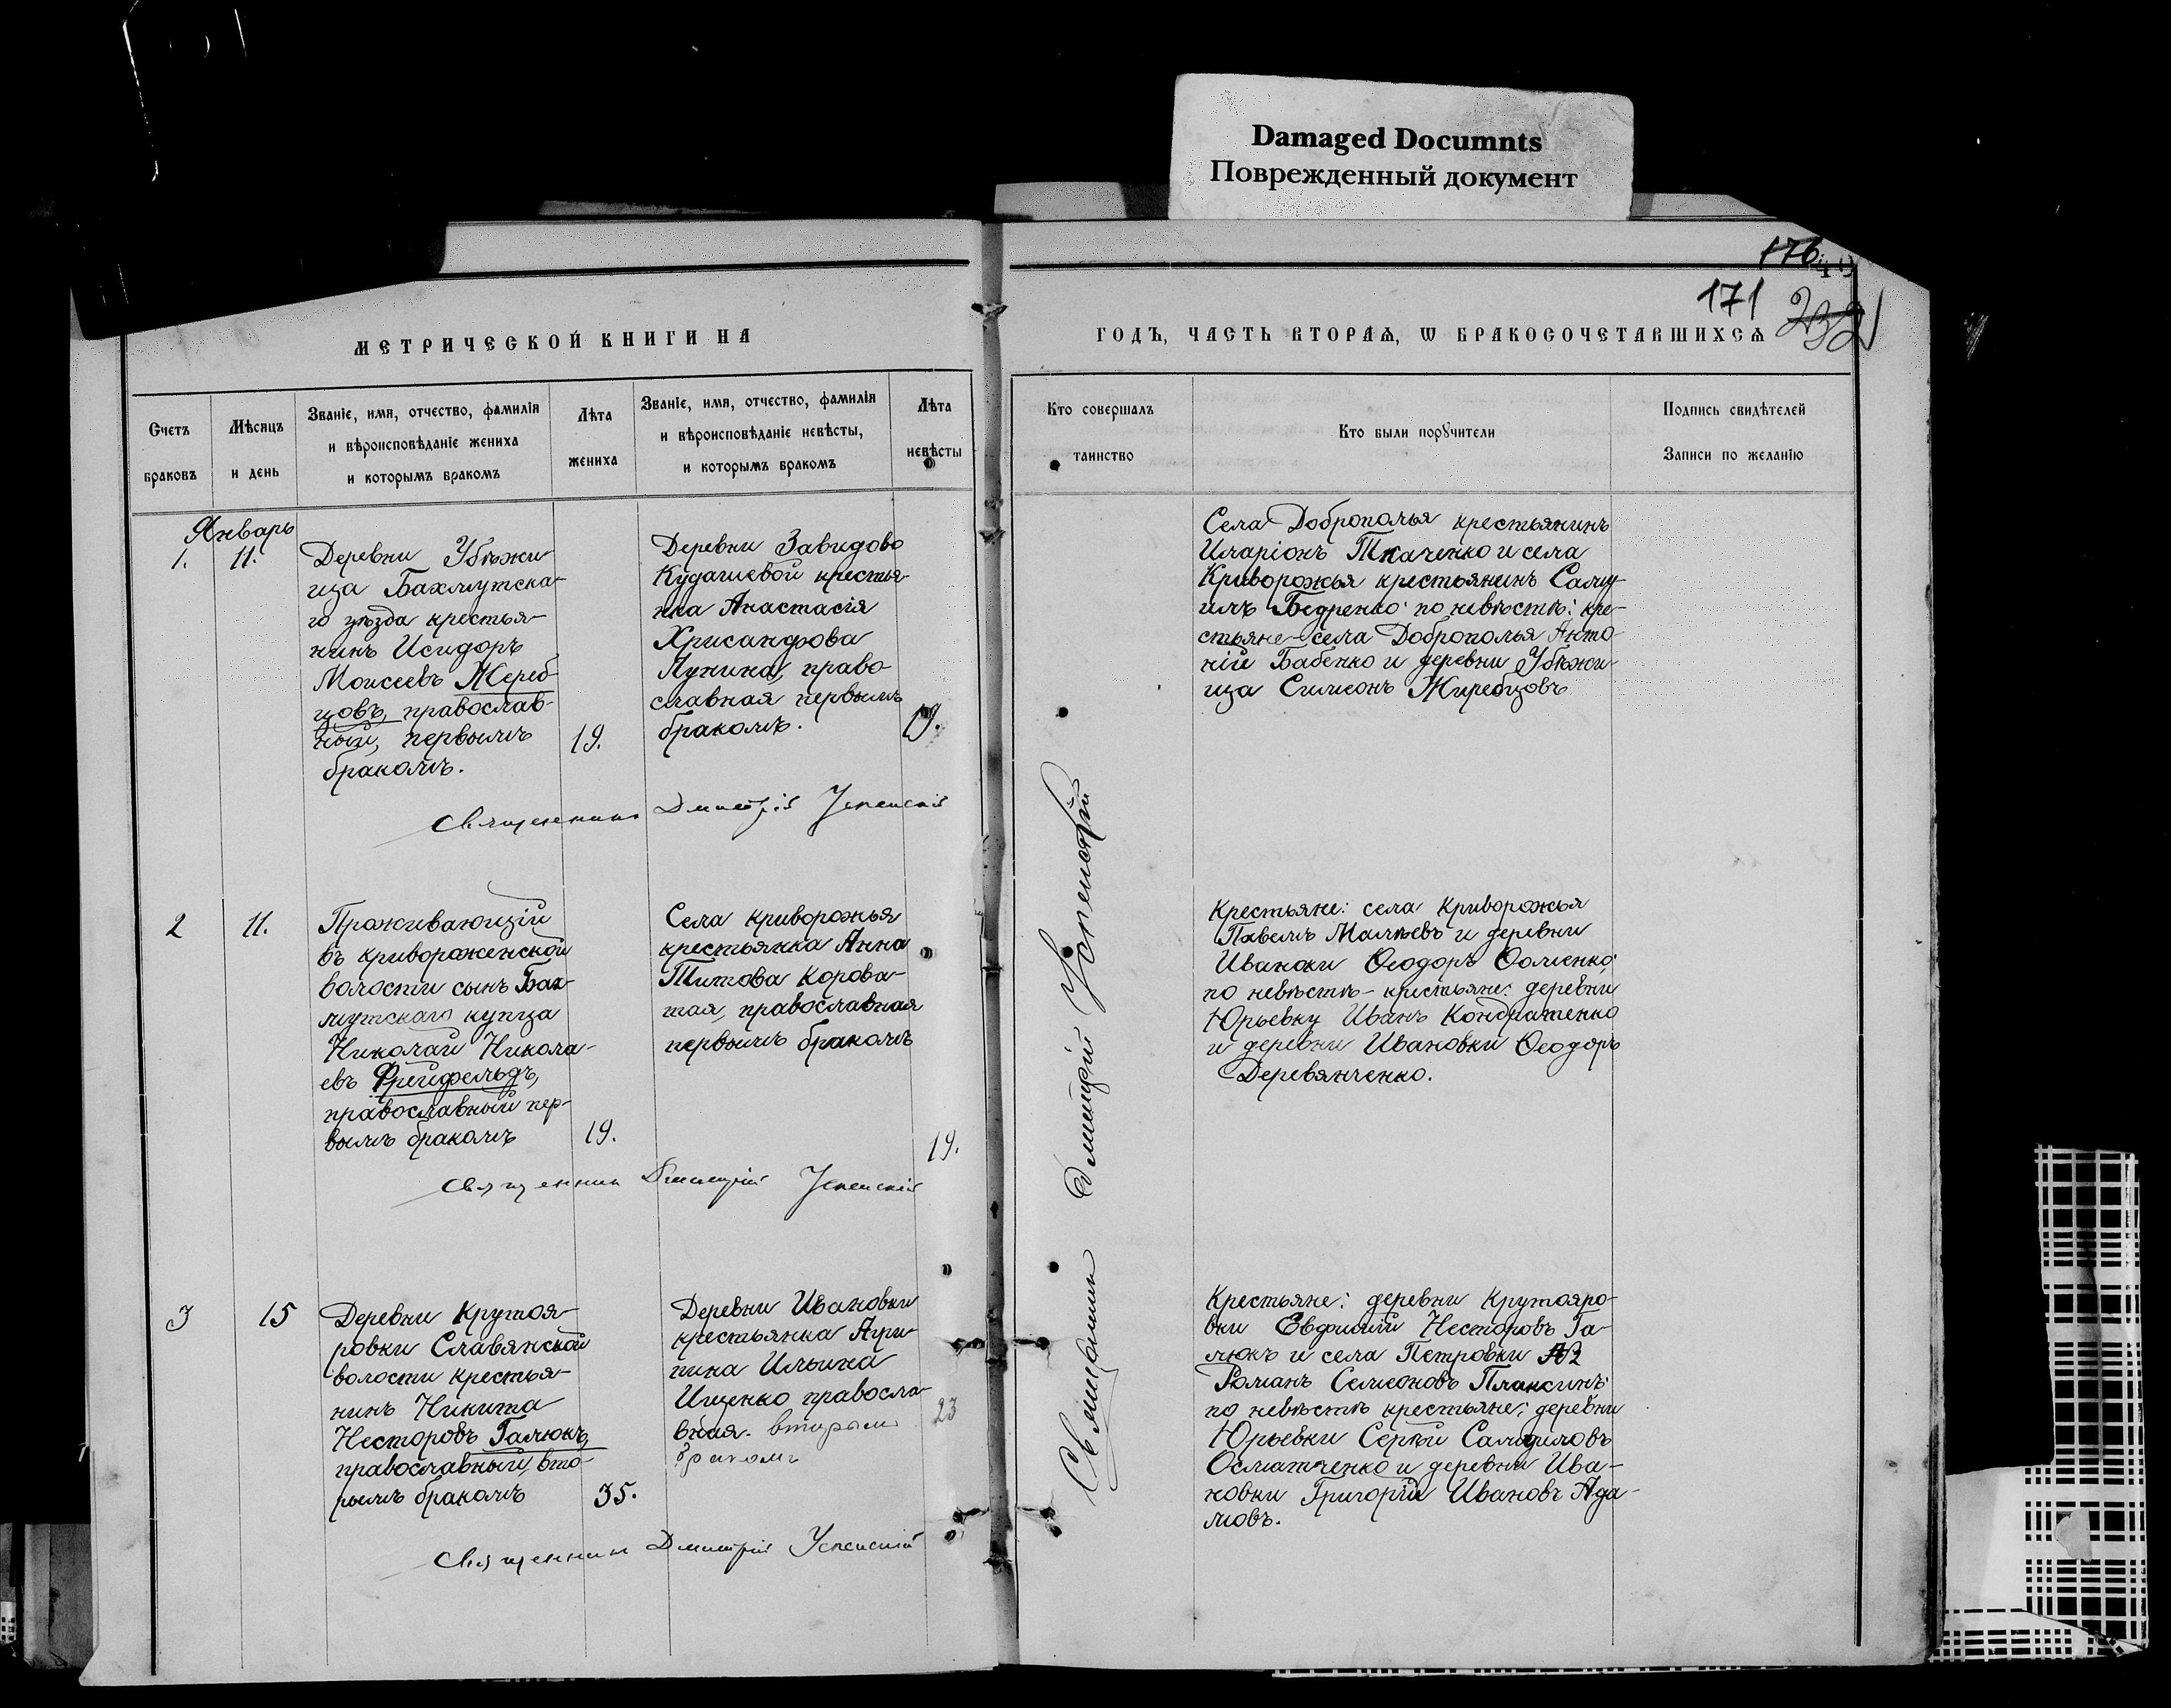 Damaged Documnts
Поврежденный документ
176
171
232
МЕТРИЧЕСКОЙ КНИГИ НА
ГОДЪ, ЧАСТЬ ВТОРАѦ, Ѡ БРАКОСОЧЕТАВШИХСѦ
Счетъ
браковъ
Мѣсяцъ
и день
Званіе, имя, отчество, фамилія
и вѣроисповѣданіе жениха
и которымъ бракомъ
Лѣта
жениха
Званіе, имя, отчество, фамилія
и вѣроисповѣданіе невѣсты,
и которымъ бракомъ
Лѣта
невѣсты
Кто совершалъ
таинство
Кто были порꙋчители
Подпись свидѣтелей
Записи по желанію
Январь
1.
11.
Деревни Убѣжи
ща Бахмутска-
го уѣзда крестья-
нинъ Исидоръ
Моисеевъ Жереб-
цовъ, православ-
ный, первымъ
бракомъ.
19.
Деревни Завидово
Кудашевой крестья-
нка Анастасія
Хрисанфова
Лунина, право
славная первымъ
бракомъ.
19.
Села Доброполья крестьянинъ
Иларіонъ Ткаченко и села
Криворожья крестьянинъ Саму-
илъ Бедренко: по невѣстѣ: кре-
стьяне села Доброполья Анто-
ній Бабенко и деревни Убѣжи-
ща Симеонъ Жиребцовъ
Священникъ Дмитрій Успенскій
2
11.
Проживающій
въ кривороженской
волости сынъ Бах-
мутскаго купца
Николай Никола-
евъ Фрейфельдъ,
православный пер-
вымъ бракомъ
19.
Села Криворожья
крестьянка Анна
Титова Корова-
тая, православная
первымъ бракомъ
19.
Крестьяне: села Криворожья
Павелъ Малѣевъ и деревни
Иваноки Ѳеодоръ Ѳоменко;
по невѣстѣ - крестьяне: деревни
Юрьевку Иванъ Кондратенко
и деревни Ивановки Ѳеодоръ
Деревянченко.
Священникъ Дмитрій Успенскій
3
15
Деревни Крутоя-
ровки Славянской
волости крестья-
нинъ Никита
Несторовъ Галюкъ,
православный, вто-
рымъ бракомъ
35.
Деревни Ивановки
крестьянка Агри-
пина Ильина
Ищенко правосла-
вная. вторымъ
бракомъ
23
Крестьяне: деревни Крутояро-
вки Евфимій Несторовъ Га-
люкъ и села Петровки №2
Романъ Семеоновъ Плаксинъ:
по невѣстѣ крестьяне: деревни
Юрьевки Сергѣй Самуиловъ
Осматченко и деревни Ива-
новки Григорій Ивановъ Ада-
мовъ.
Священникъ Дмитрій Успенскій
Священникъ Дмитрій Успенскій